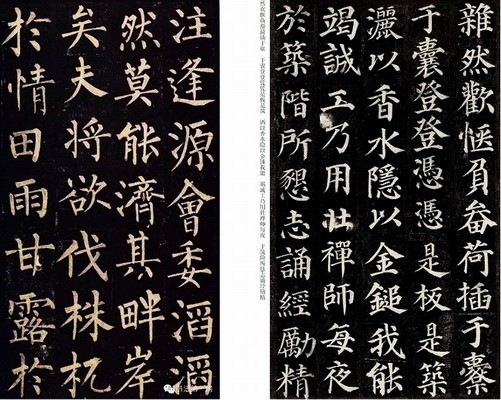 雜然歡愜負畚荷插于橐
于囊登登憑憑是板是築
灑以香水隱以金鎚我能
竭誠工乃用壯禪師每夜
於築階所懇志誦經勵精
注逢源會委滔滔
然莫能濟其畔岸
矣夫將欲伐株杌
於情田雨甘露於